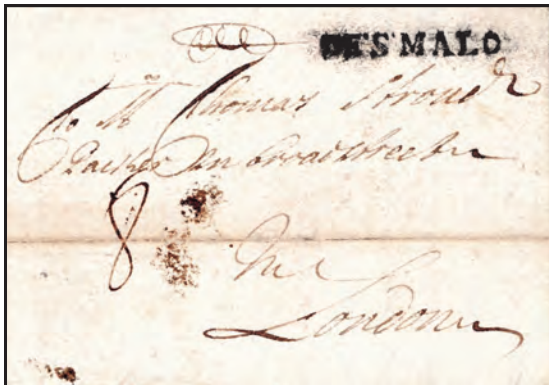 DE S'MALO
To Mr Thomas Stroud
Packer In broadstreet
8
In
London